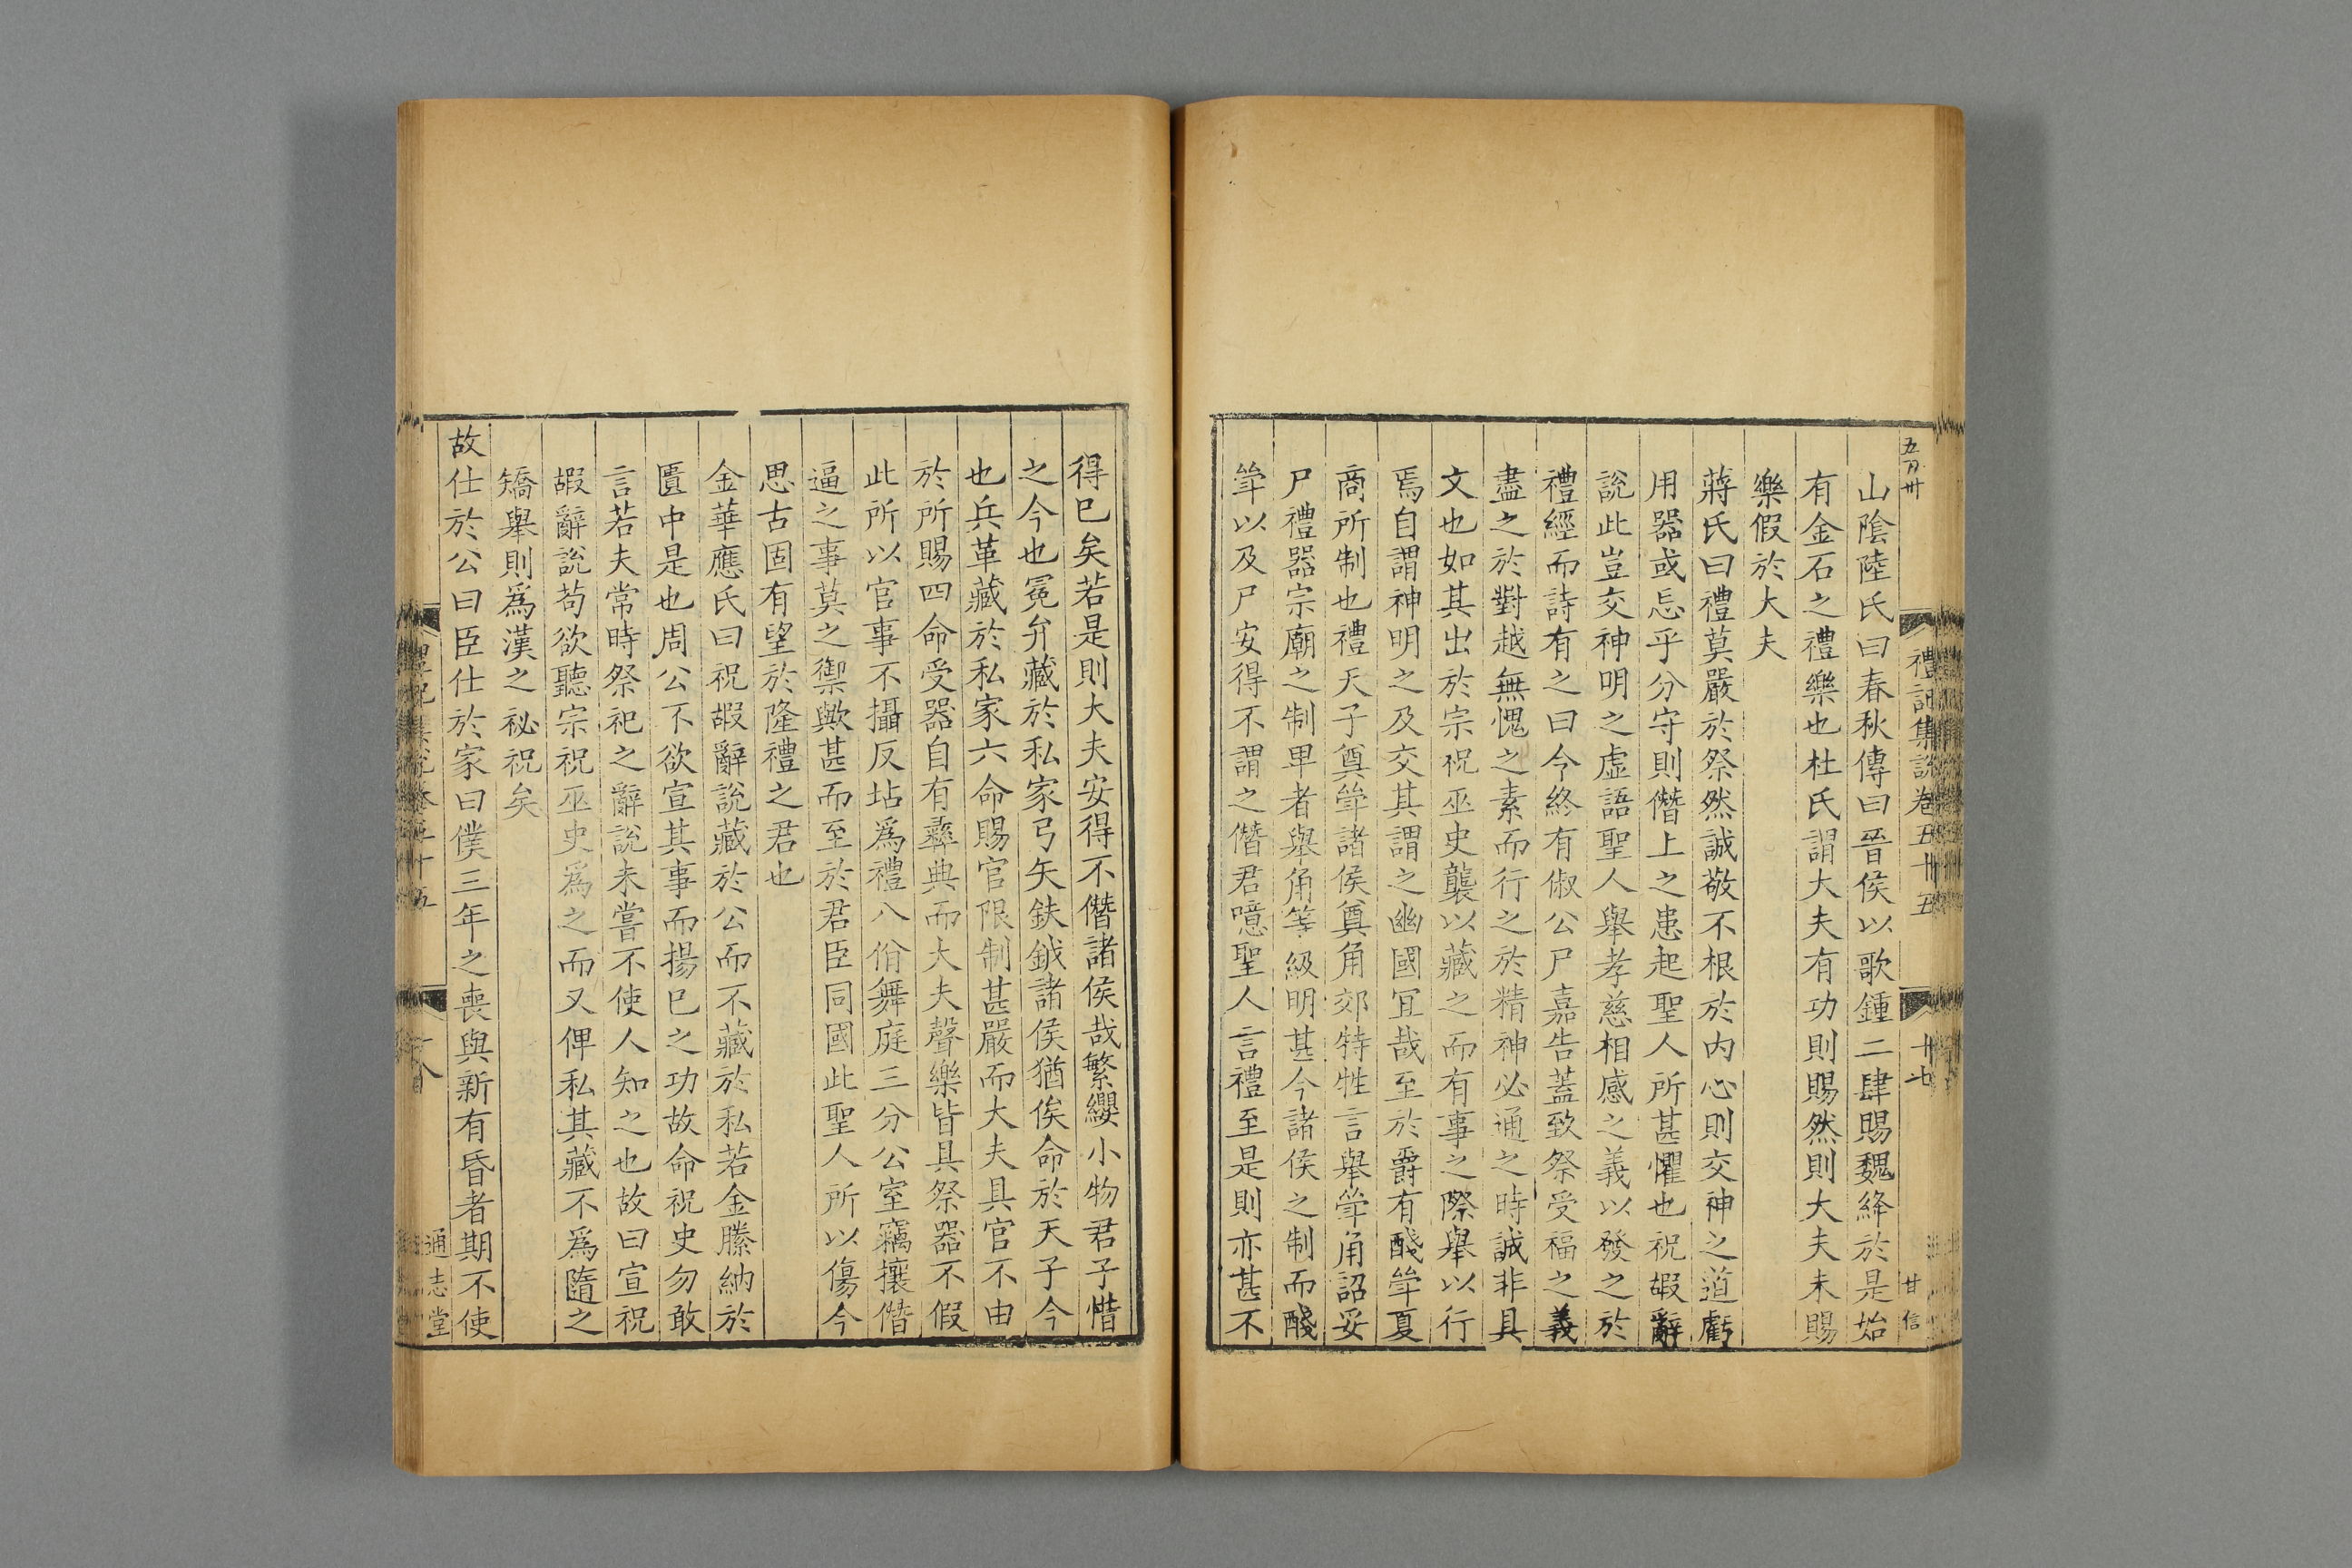 禮記集說卷五十五
十七
甘信
山陰陸氏曰春秋傳曰晉侯以歌鍾二肆賜魏絳於是始
有金石之禮樂也杜氏謂大夫有功則賜然則大夫未賜
樂假於大夫
蔣氏曰禮莫嚴於祭然誠敬不根於內心則交神之道虧
用器或忘乎分守則僭上之患起聖人所甚懼也祝嘏辭
說此豈交神明之虛語聖人舉孝慈相感之義以發之於
禮經而詩有之曰令終有俶公尸嘉告蓋致祭受福之義
盡之於對越無愧之素而行之於精神必通之時誠非具
文也如其出於宗祝巫史襲以藏之而有事之際舉以行
焉自謂神明之及交其謂之幽國宜哉至於爵有醆斝夏
商所制也禮天子奠斝諸侯奠角郊特牲言舉斝角詔妥
尸禮器宗廟之制卑者舉角等級明甚今諸侯之制而醆
斝以及尸安得不謂之僭君噫聖人言禮至是則亦甚不
得已矣若是則大夫安得不僭諸侯哉繁纓小物君子惜
之今也冕弁藏於私家弓矢鈇鉞諸侯猶俟命於天子今
也兵革藏於私家六命賜官限制甚嚴而大夫具官不由
於所賜四命受器自有彞典而大夫聲樂皆具祭器不假
此所以官事不攝反坫爲禮八佾舞庭三分公室竊攘僭
逼之事莫之禦歟甚而至於君臣同國此聖人所以傷今
思古固有望於隆禮之君也
金華應氏曰祝嘏辭說藏於公而不藏於私若金縢納於
匱中是也周公不欲宣其事而揚已之功故命祝史勿敢
言若夫常時祭祀之辭說未嘗不使人知之也故曰宣祝
嘏辭說苟欲聽宗祝巫史爲之而又俾私其藏不爲隋之
矯舉則爲漢之祕祝矣
故仕於公曰臣仕於家曰僕三年之喪與新有昏者期不使
禮記集說卷五十五
十八
通志堂